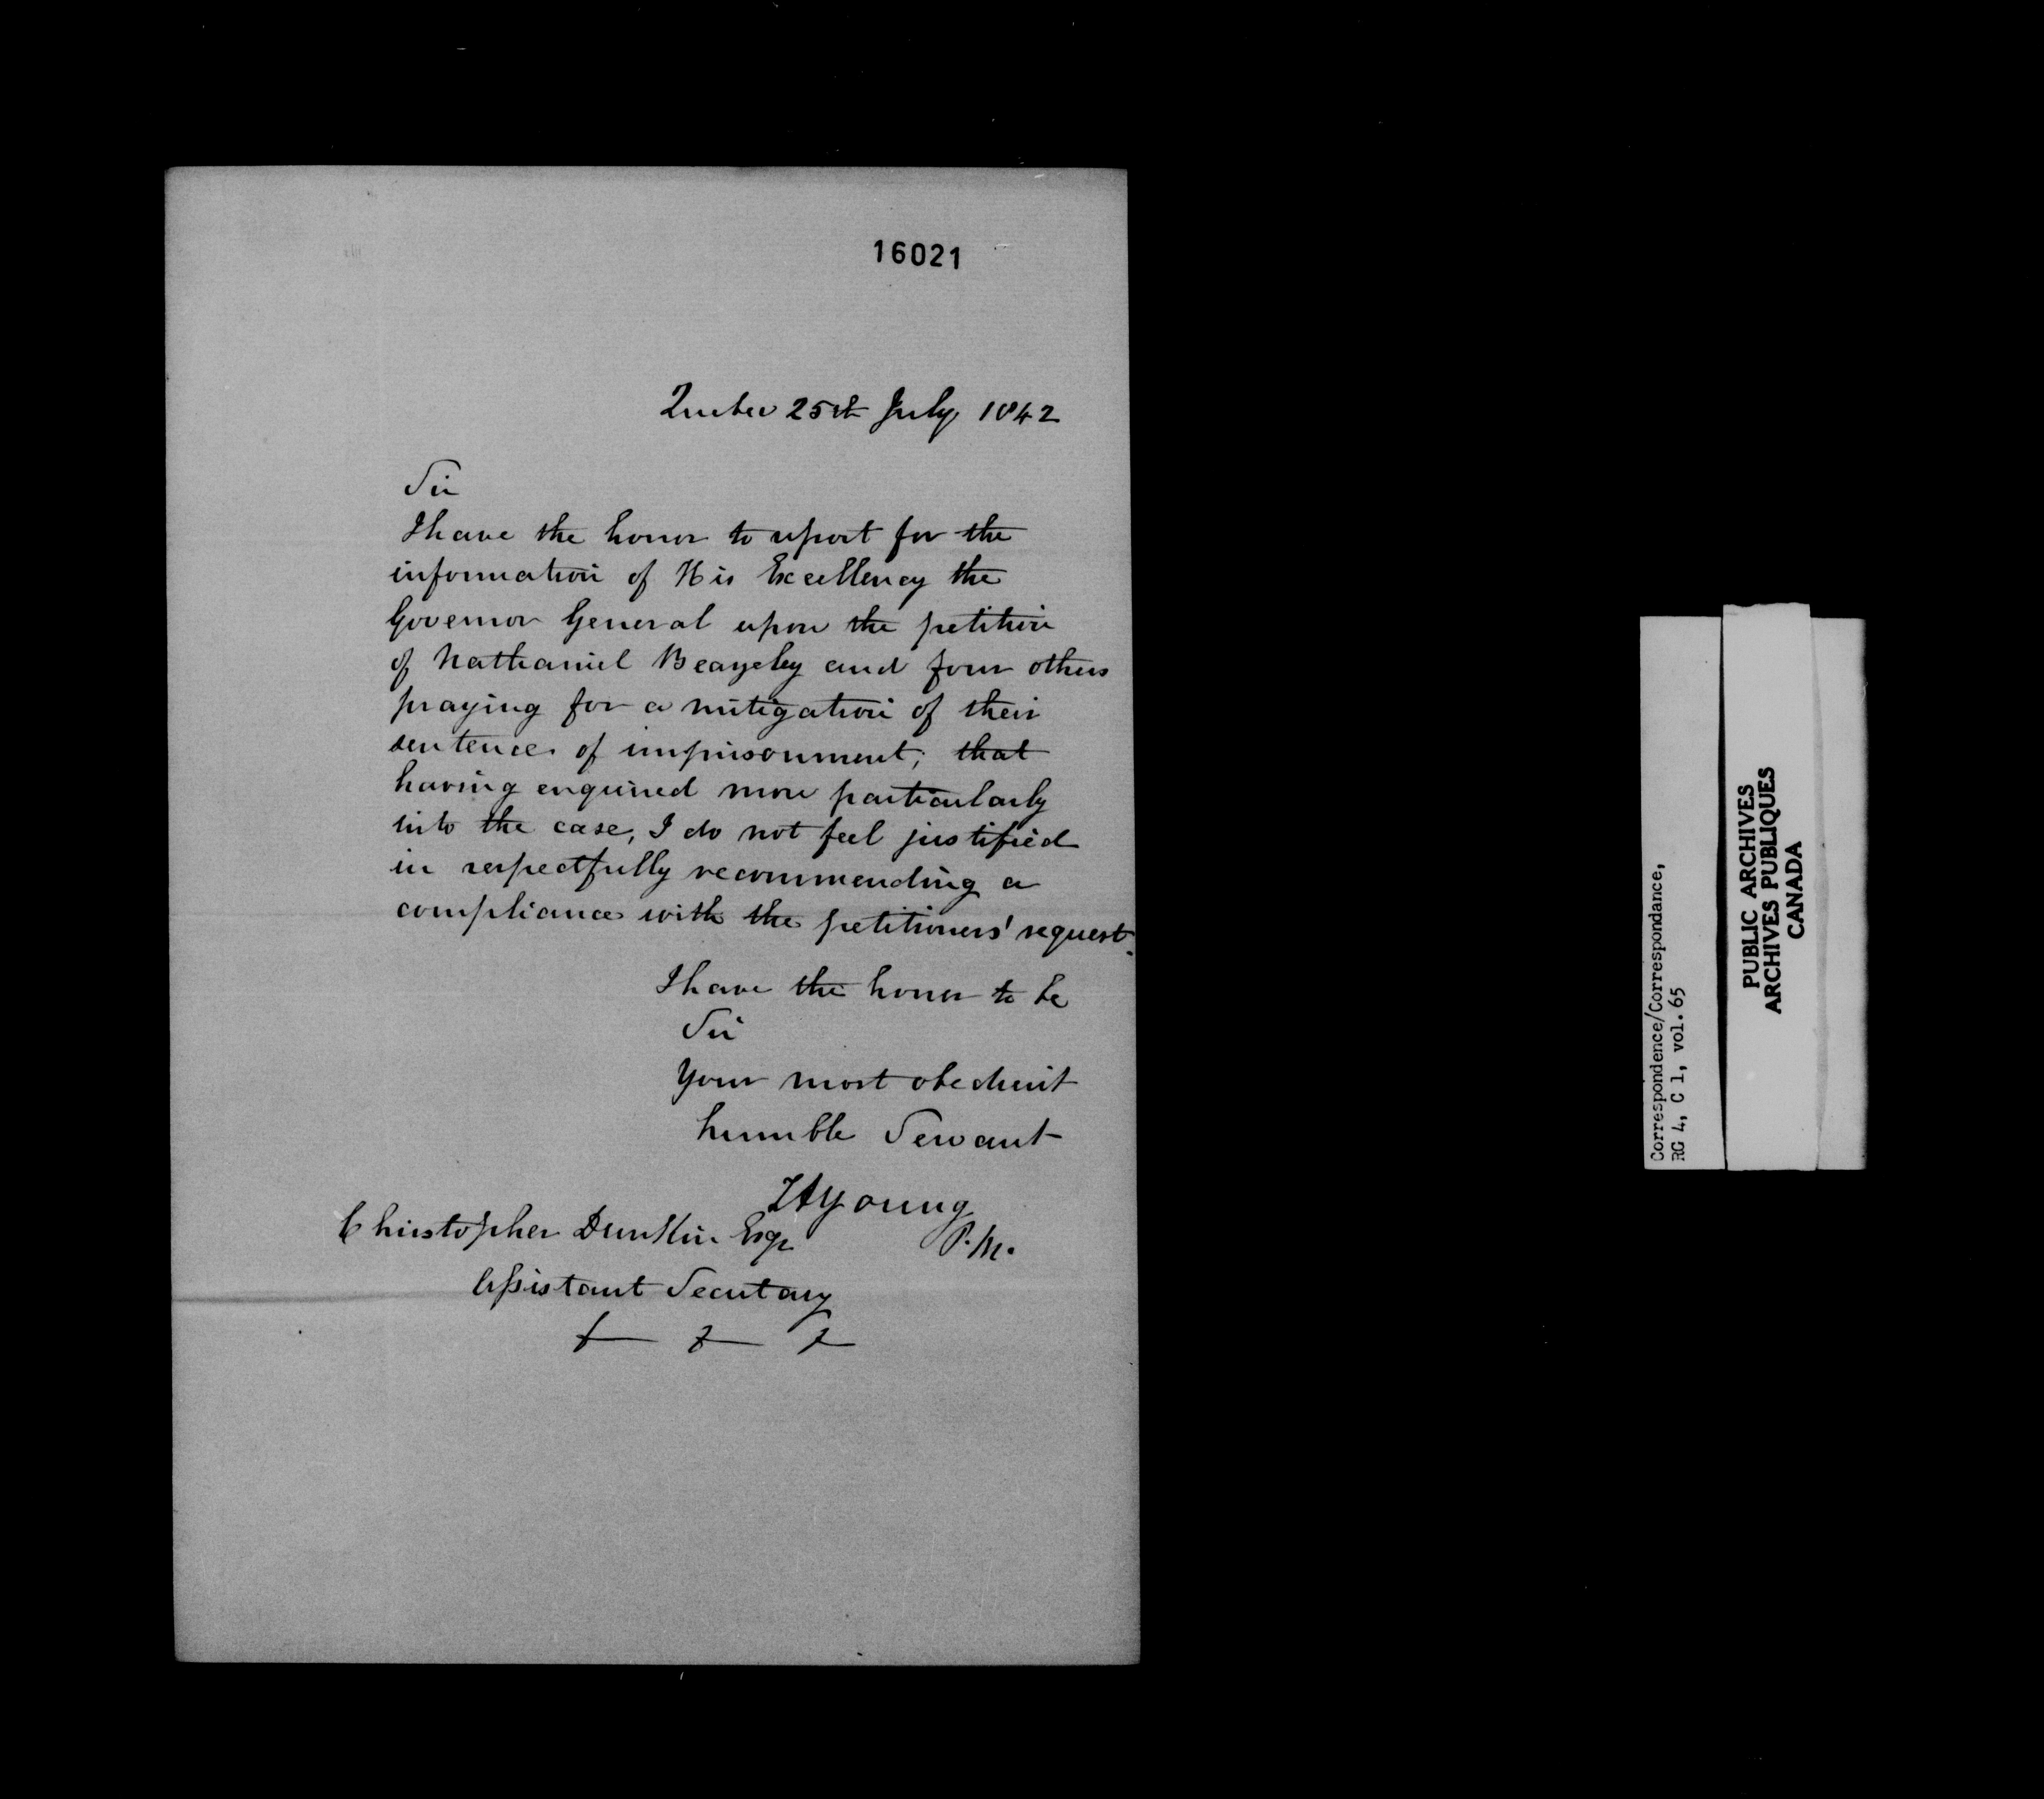 16021
Quebec 25th July 1842
Sir
I have the honor to report for the
information of His Excellency the
Governor General upon the petition
of Nathaniel Beayeley and four others
praying for a mitigation of their
sentence of imprisonment; that
having enquired more particularly
into the case, I do not feel justified
in respectfully recommending a
compliance with the petitioners' request.
I have the honor to be
Sir
Your most obedient
humble Servant
Young
P.M.
Christopher Dunkin Esqr
Assistant Secretary
Correspondence/Correspondance,
RG 4, C 1, vol. 65
PUBLIC ARCHIVES
ARCHIVES PUBLIQUES
CANADA